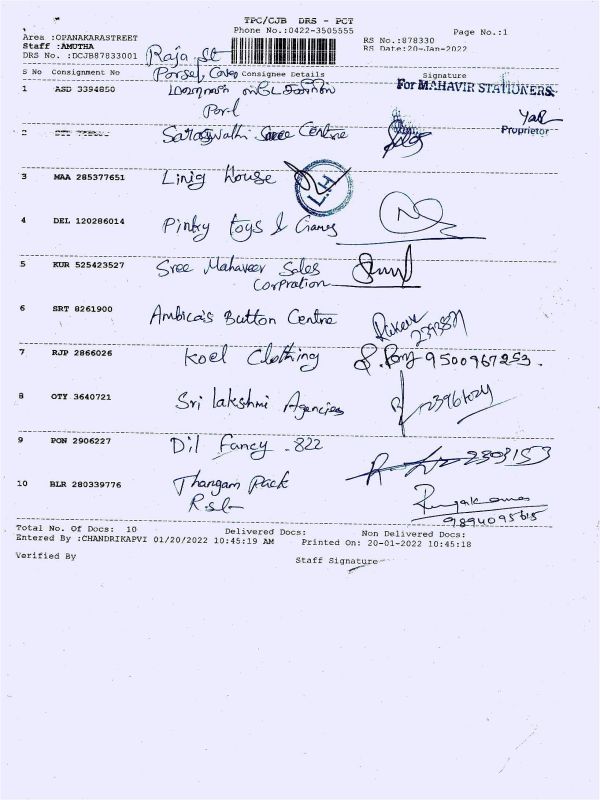 TPC/CJB DRS - PCT
Phone No.:0422-3505555
Page No.:1
Area :OPANAKARASTREET
RS No.:878330
Staff :AMUTHA
RS Date:20-Jan-2022
DRS No. :DCJB87833001
Raja St
S No Consignment No Consignee Details Signature
Cover
1 ASD 3394850
For MAHAVIR STATIONERS
Proprietor
2 Saraswathi Centre
3 MAA 285377651 Linig House
L.H
4 DEL 120286014 Pinky toys & Games
5 KUR 525423527 Sree Mahaveer Sales
Corpration
6 SRT 8261900 Ambica's Button Centre
7 RJP 2866026 Koel Clothing 9500967253.
8 OTY 3640721 Sri lakshmi Agencies
9 PON 2906227 Dil Fancy - 822 2303153
10 BLR 280339776 Thangam Pack
9894095615
Total No. Of Docs: 10 Delivered Docs: Non Delivered Docs:
Entered By :CHANDRIKAPVI 01/20/2022 10:45:19 AM Printed On: 20-01-2022 10:45:18
Verified By Staff Signature